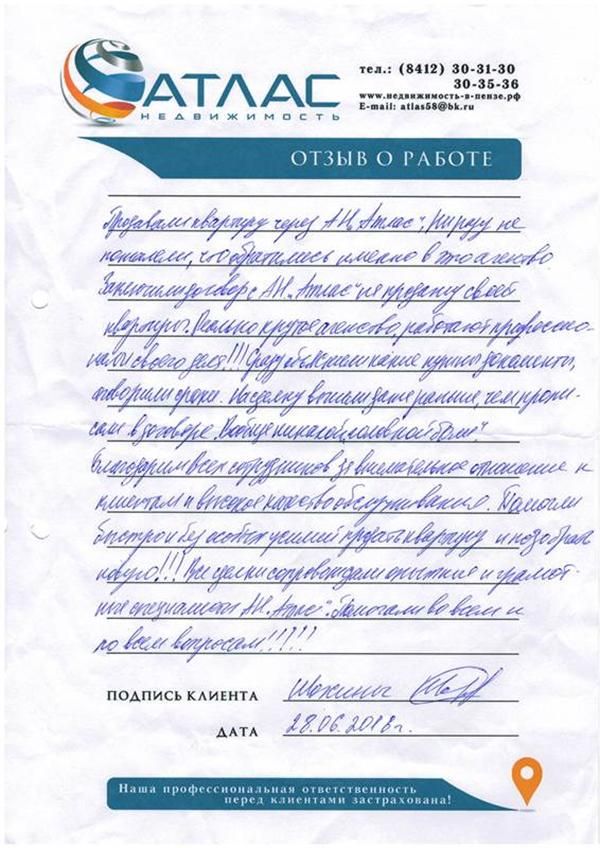 АТЛАС
НЕДВИЖИМОСТЬ
тел.: (8412) 30-31-30
30-35-36
www.недвижимость-в-пензе.рф
E-mail: atlas58@bk.ru
ОТЗЫВ О РАБОТЕ
Продавали квартиру через АН „Атлас", Ни разу не
пожалели, что обратились именно в это агенство
Заключили договор с АН „Атлас" на продажу своей
квартиры. Реально крутое агенство, работают професссио-
налы своего дела!!! Сразу объяснили какие нужны документы,
оговорили сроки. На сделку вышли даже раньше, чем пропи-
сали в договоре. Вообще никакой „головной боли"
Благодарим всех сотрудников за внимательное отношение к
клиентам и высокое качество обслуживания. Помогли
быстро и без особых усилий продать квартиру и подобрать
новую!!! Все сделки сопровождали опытные и грамот-
ные специалисты АН „Атлас". Помогали во всем и
по всем вопросам!!!!!
ПОДПИСЬ КЛИЕНТА Шокины
ДАТА 28.06.2018г.
Наша профессиональная ответственность
перед клиентами застрахована!